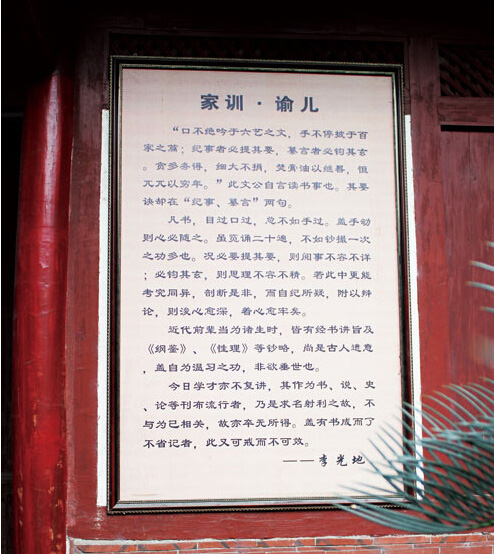 家训·谕儿
“口不绝吟于六艺之文，手不停披于百
家之篇；纪事者必提其要，纂言者必钩其玄
。贪多务得，细大不捐，焚膏油以继晷，恒
兀兀以穷年。”此文公自言读书事也。其要
诀却在“纪事、纂言”两句。
凡书，目过口过，总不如手过。盖手动
则心必随之。虽览诵二十遍，不如钞撮一次
之功多也。况必要提其要，则阅事不容不详
；必钩其玄，则思理不容不精。若此中更能
考究同异，剖断是非，而自纪所疑，附以辩
论，则浚心愈深，着心愈牢矣。
近代前辈当为诸生时，皆有经书讲旨及
《纲鉴》、《性理》等钞略，尚是古人遗意
，盖自为温习之功，非欲垂世也。
今日学才亦不复讲，其作为书、说、史
、论等刊布流行者，乃是求名射利之故，不
与为己相关，故亦卒无所得。盖有书成而了
不省记者，此又可戒而不可效。
——李光地